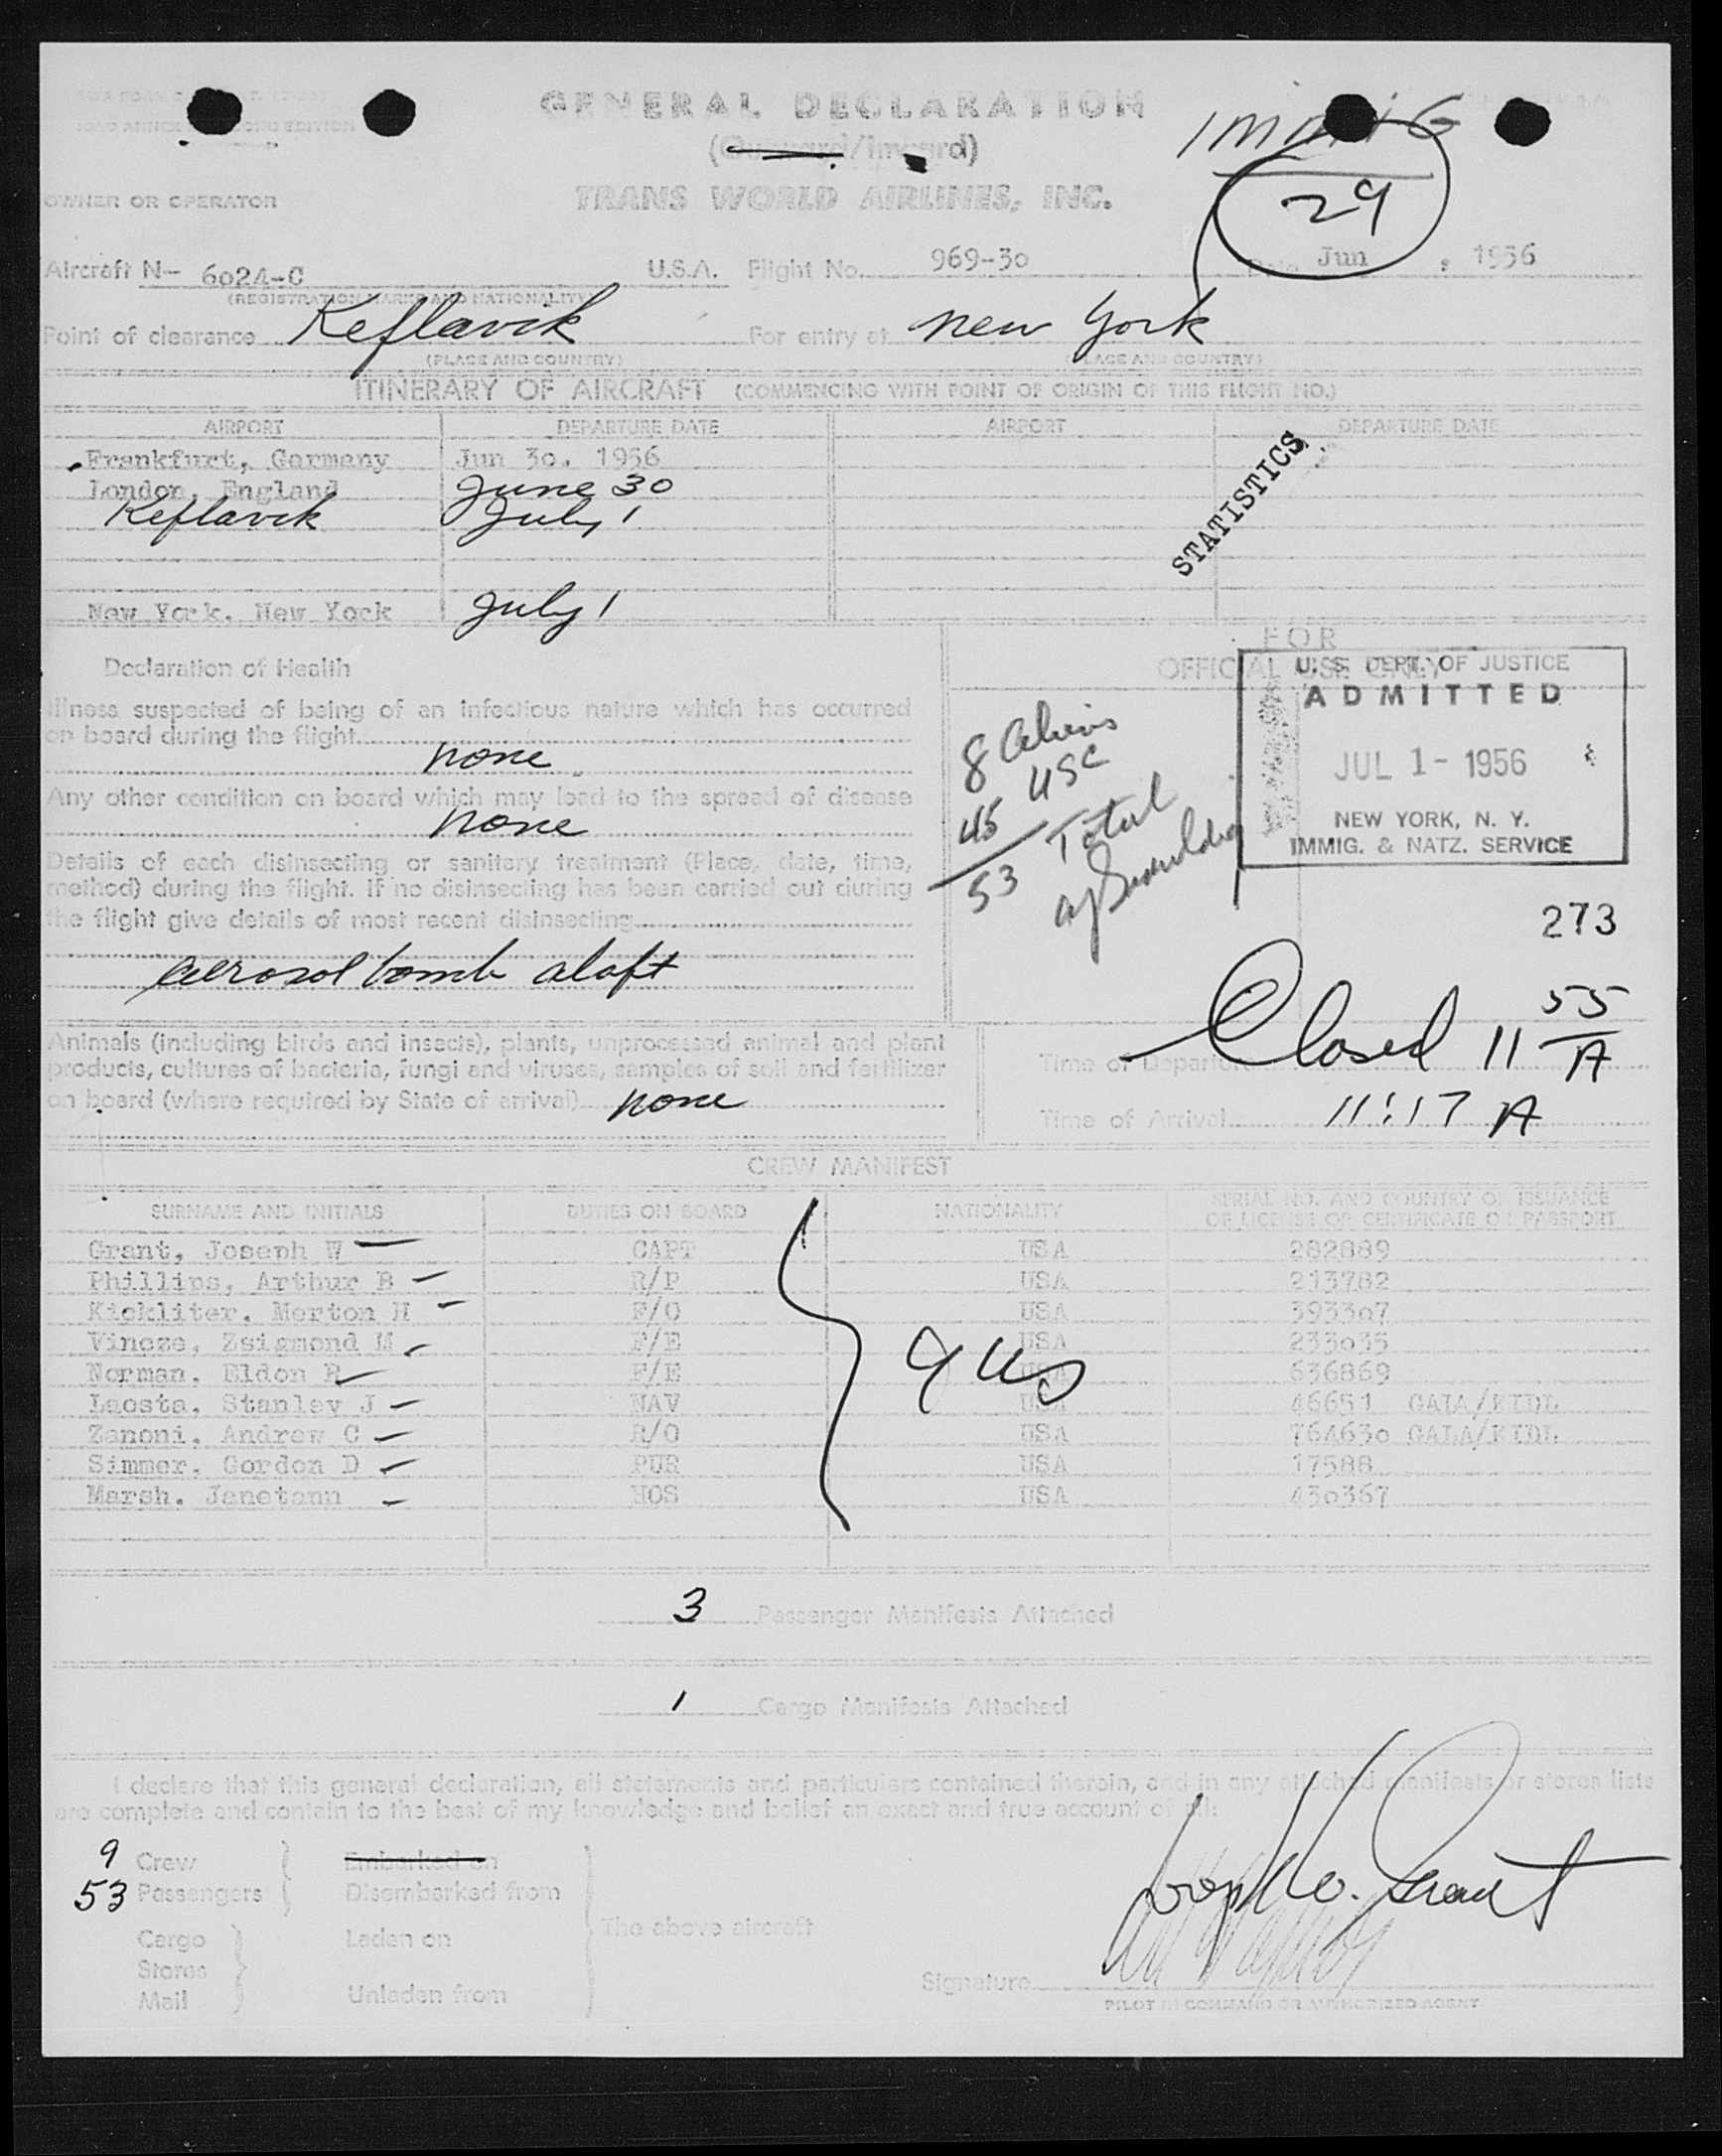 GENERAL DECLARATION
(Outward/Inward)
Immig
29
OWNER OR OPERATOR
TRANS WORLD AIRLINES, INC.
Aircraft N- 6024-C U.S.A. Flight No. 969-30 Date Jun , 1956
(REGISTRATION MARKS AND NATIONALITY)
Point of clearance Keflavik For entry at New York
(PLACE AND COUNTRY) (PLACE AND COUNTRY)
ITINERARY OF AIRCRAFT (COMMENCING WITH POINT OF ORIGIN OF THIS FLIGHT NO.)
AIRPORT DEPARTURE DATE AIRPORT DEPARTURE DATE
Frankfurt, Germany Jun 30. 1956
London, England June 30
Keflavik July 1
STATISTICS
New York, New York July 1
Declaration of Health
FOR
OFFICIAL USE ONLY
U. S. DEPT. OF JUSTICE
ADMITTED
JUL 1- 1956
NEW YORK, N. Y.
IMMIG. & NATZ. SERVICE
Illness suspected of being of an infectious nature which has occurred
on board during the flight
none
Any other condition on board which may lead to the spread of disease
none
8 Aliens
45 USC
53 Total
Details of each disinsecting or sanitary treatment (Place, date, time,
method) during the flight. If no disinsecting has been carried out during
the flight give details of most recent disinsecting
aerosol bomb aloft
273
Animals (including birds and insects), plants, unprocessed animal and plant
products, cultures of bacteria, fungi and viruses, samples of soil and fertilizer
on board (where required by State of arrival) none
Time of Departure Closed 11 55 A
Time of Arrival 11:17 A
CREW MANIFEST
SURNAME AND INITIALS DUTIES ON BOARD NATIONALITY SERIAL NO. AND COUNTRY OF ISSUANCE
OF LICENSE OR CERTIFICATE OR PASSPORT
Grant, Joseph W CAPT USA 282889
Phillips, Arthur B R/P USA 213782
Kickliter, Merton H F/O USA 393307
Vincze, Zsigmond M F/E USA 233035
Norman, Eldon R F/E USA 636869
Lacsta, Stanley J NAV USA 46651 GALA/KIDL
Zanoni, Andrew C R/O USA 764630 GALA/KIDL
Simmer, Gordon D PUR USA 17588
Marsh, Janetann HOS USA 430367
9 US
3 Passenger Manifests Attached
1 Cargo Manifests Attached
I declare that this general declaration, all statements and particulars contained therein, and in any attached manifests or stores lists
are complete and contain to the best of my knowledge and belief an exact and true account of all:
9 Crew Embarked on
53 Passengers Disembarked from
The above aircraft
Cargo Laden on
Stores
Mail Unladen from
Joseph W. Grant
Signature
PILOT IN COMMAND OR AUTHORIZED AGENT